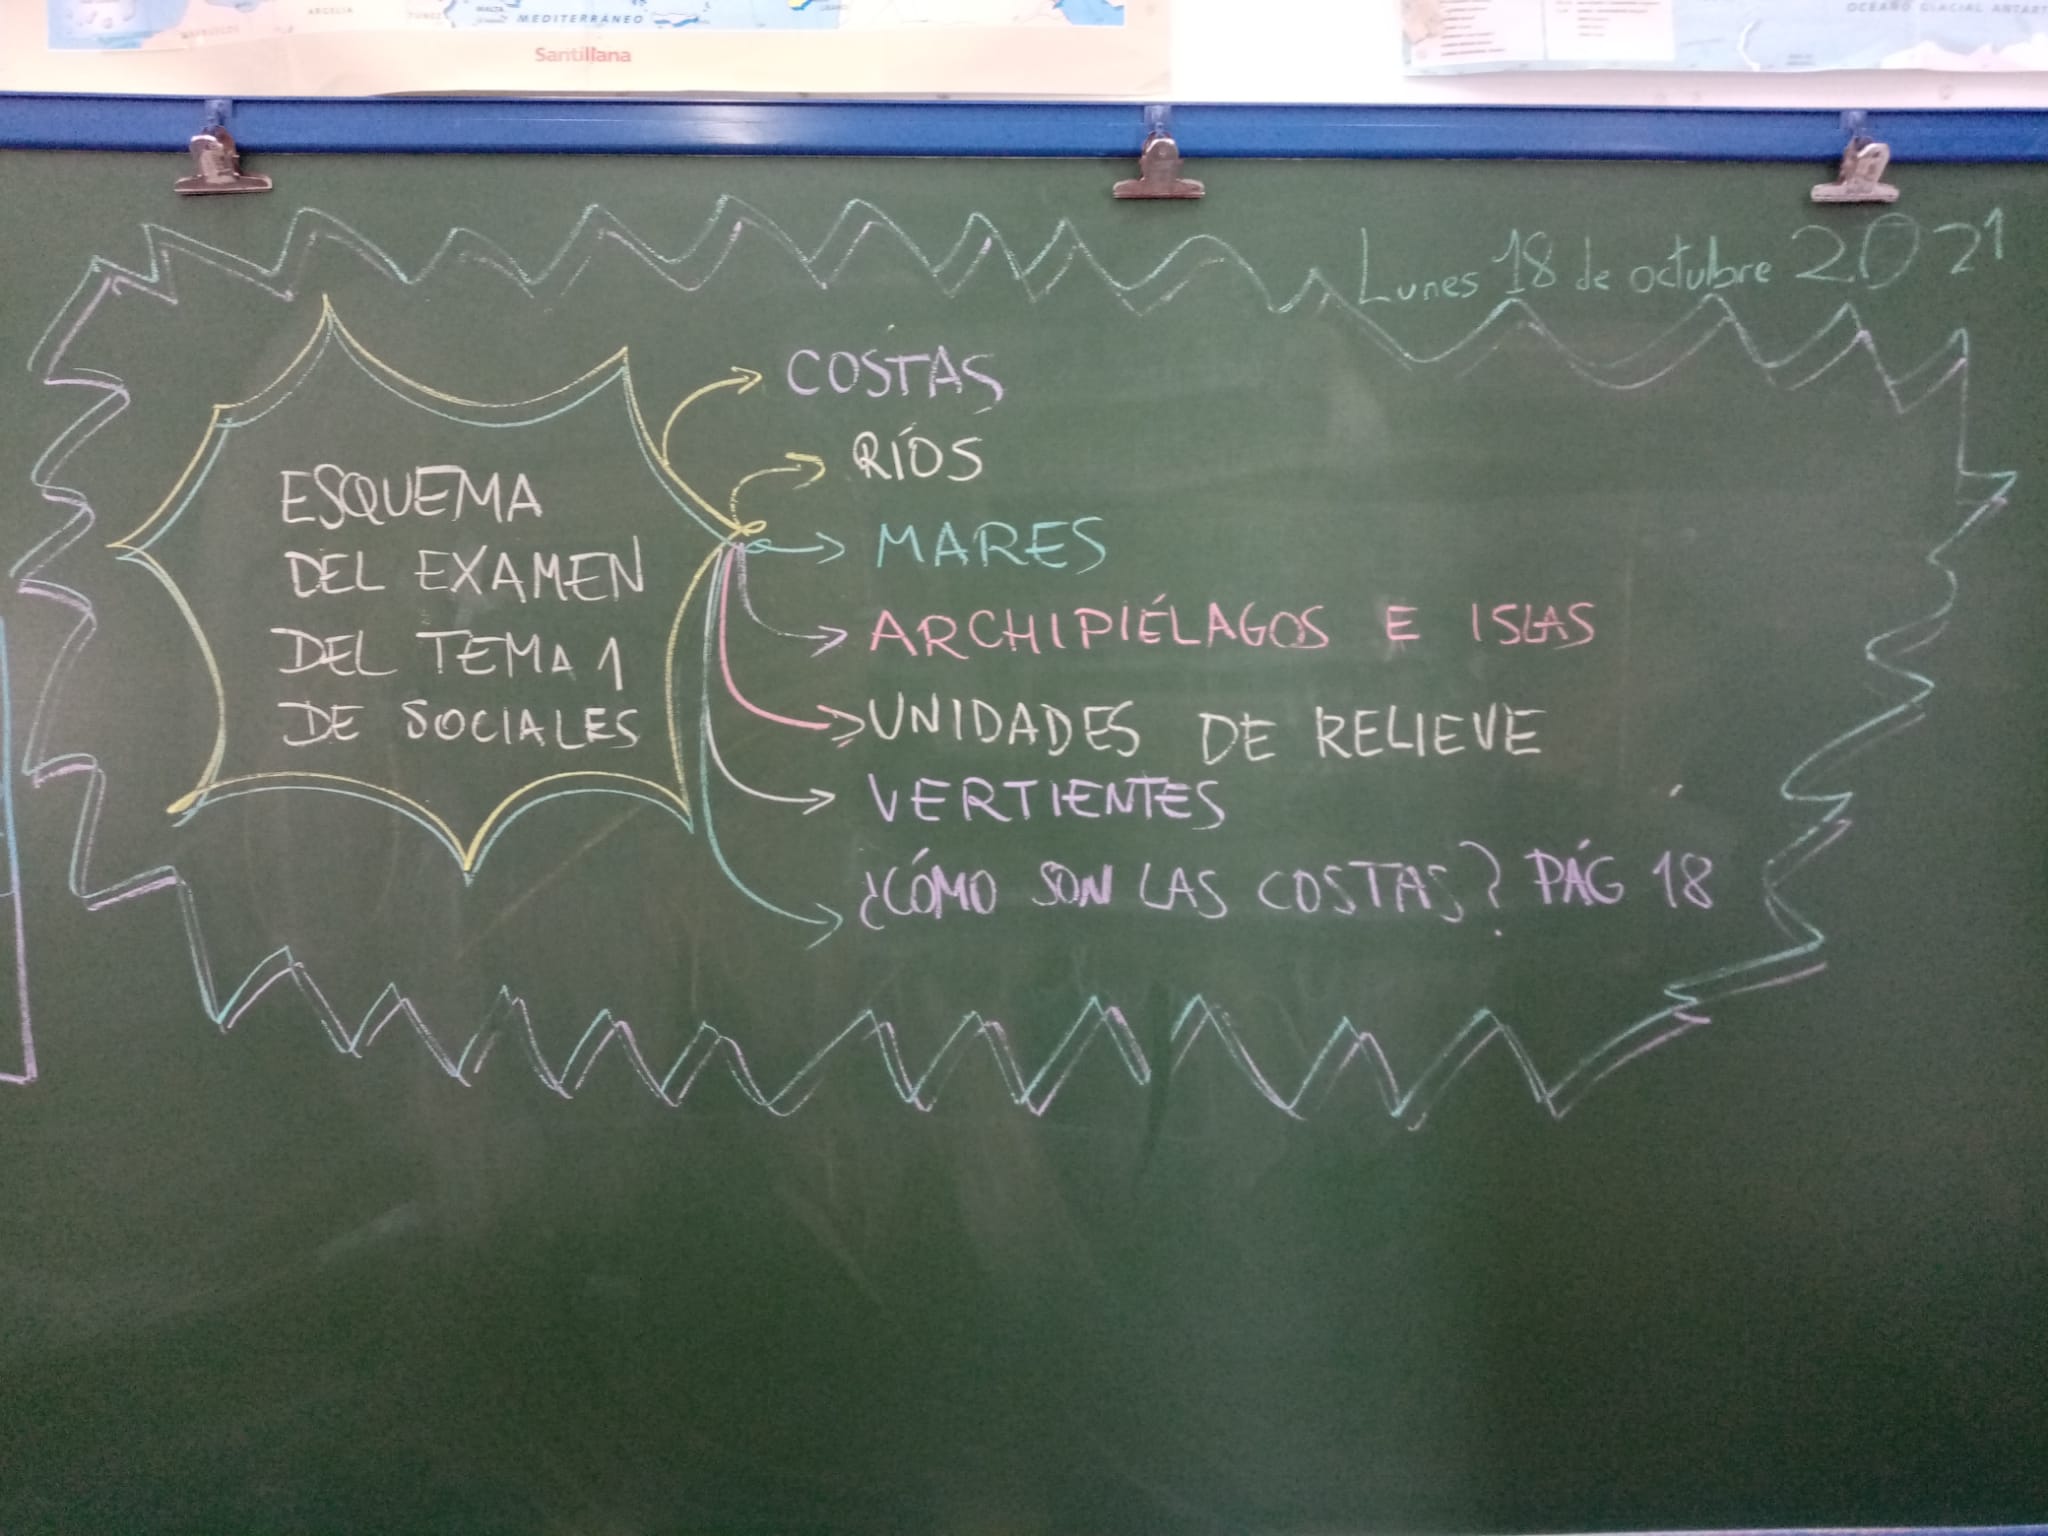 ARGELIA
TÚNEZ
MALTA
MEDITERRÁNEO
Santillana
OCÉANO GLACIAL ANTÁRT
Lunes 18 de octubre 2021
ESQUEMA
DEL EXAMEN
DEL TEMA 1
DE SOCIALES
COSTAS
RÍOS
MARES
ARCHIPIÉLAGOS E ISLAS
UNIDADES DE RELIEVE
VERTIENTES
¿CÓMO SON LAS COSTAS? PÁG 18